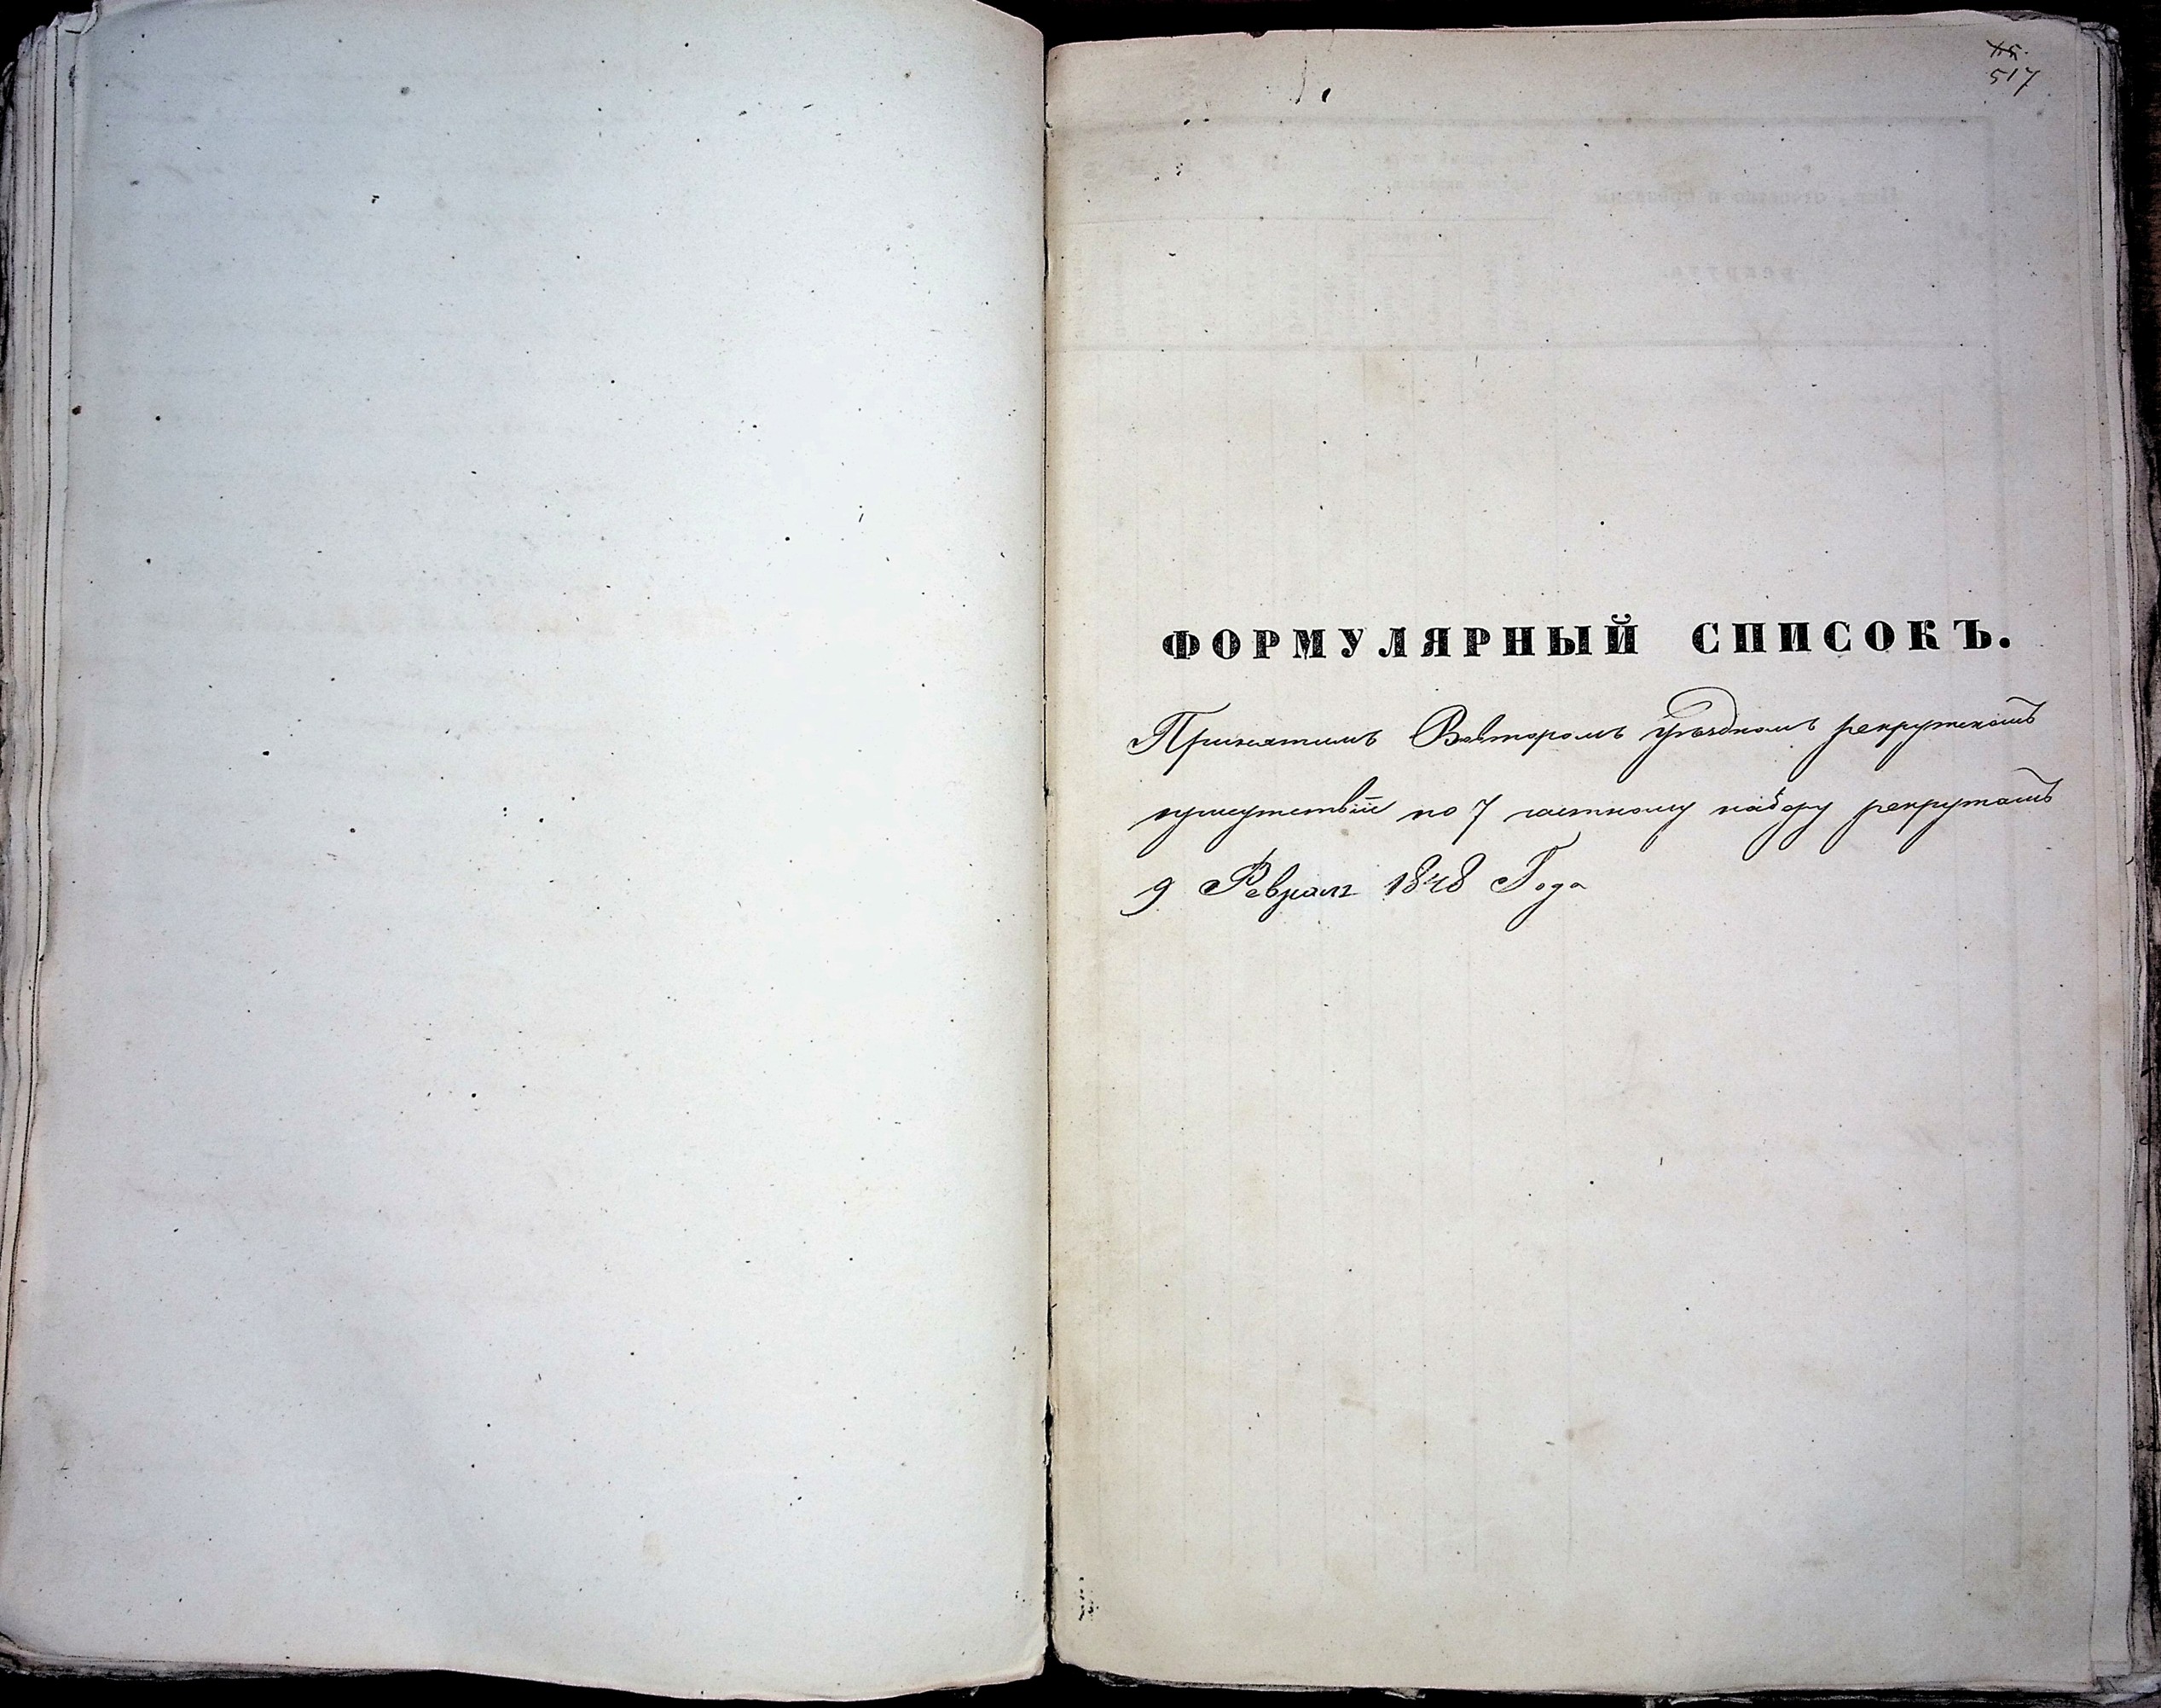 517
ФОРМУЛЯРНЫЙ СПИСОКЪ.
Принятымъ уѣзднымъ рекрутскимъ
присутствiи по 7 частному набору рекрутамъ
9 Февраля 1848 Года